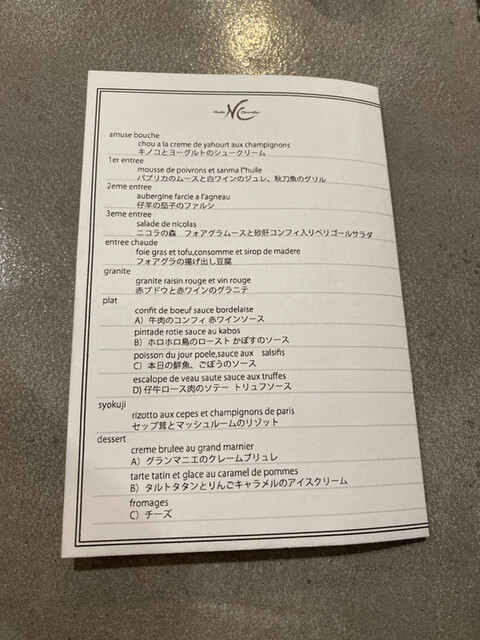 NC
amuse bouche
chou a la creme de yahourt aux champignons
キノコとヨーグルトのシュークリーム
1er entree
mousse de poivrons et sanma l"huile
パプリカのムースと白ワインのジュレ、秋刀魚のグリル
2eme entree
aubergine farcie a l'agneau
仔羊の茄子のファルシ
3eme entree
salade de nicolas
ニコラの森　フォアグラムースと砂肝コンフィ入りペリゴールサラダ
entree chaude
foie gras et tofu,consomme et sirop de madere
フォアグラの揚げ出し豆腐
granite
granite raisin rouge et vin rouge
赤ブドウと赤ワインのグラニテ
plat
confit de boeuf sauce bordelaise
A）牛肉のコンフィ 赤ワインソース
pintade rotie sauce au kabos
B）ホロホロ鳥のロースト かぼすのソース
poisson du jour poele,sauce aux salsifis
C）本日の鮮魚、ごぼうのソース
escalope de veau saute sauce aux truffes
D) 仔牛ロース肉のソテー トリュフソース
syokuji
rizotto aux cepes et champignons de paris
セップ茸とマッシュルームのリゾット
dessert
creme brulee au grand marnier
A）グランマニエのクレームブリュレ
tarte tatin et glace au caramel de pommes
B）タルトタタンとりんごキャラメルのアイスクリーム
fromages
C）チーズ